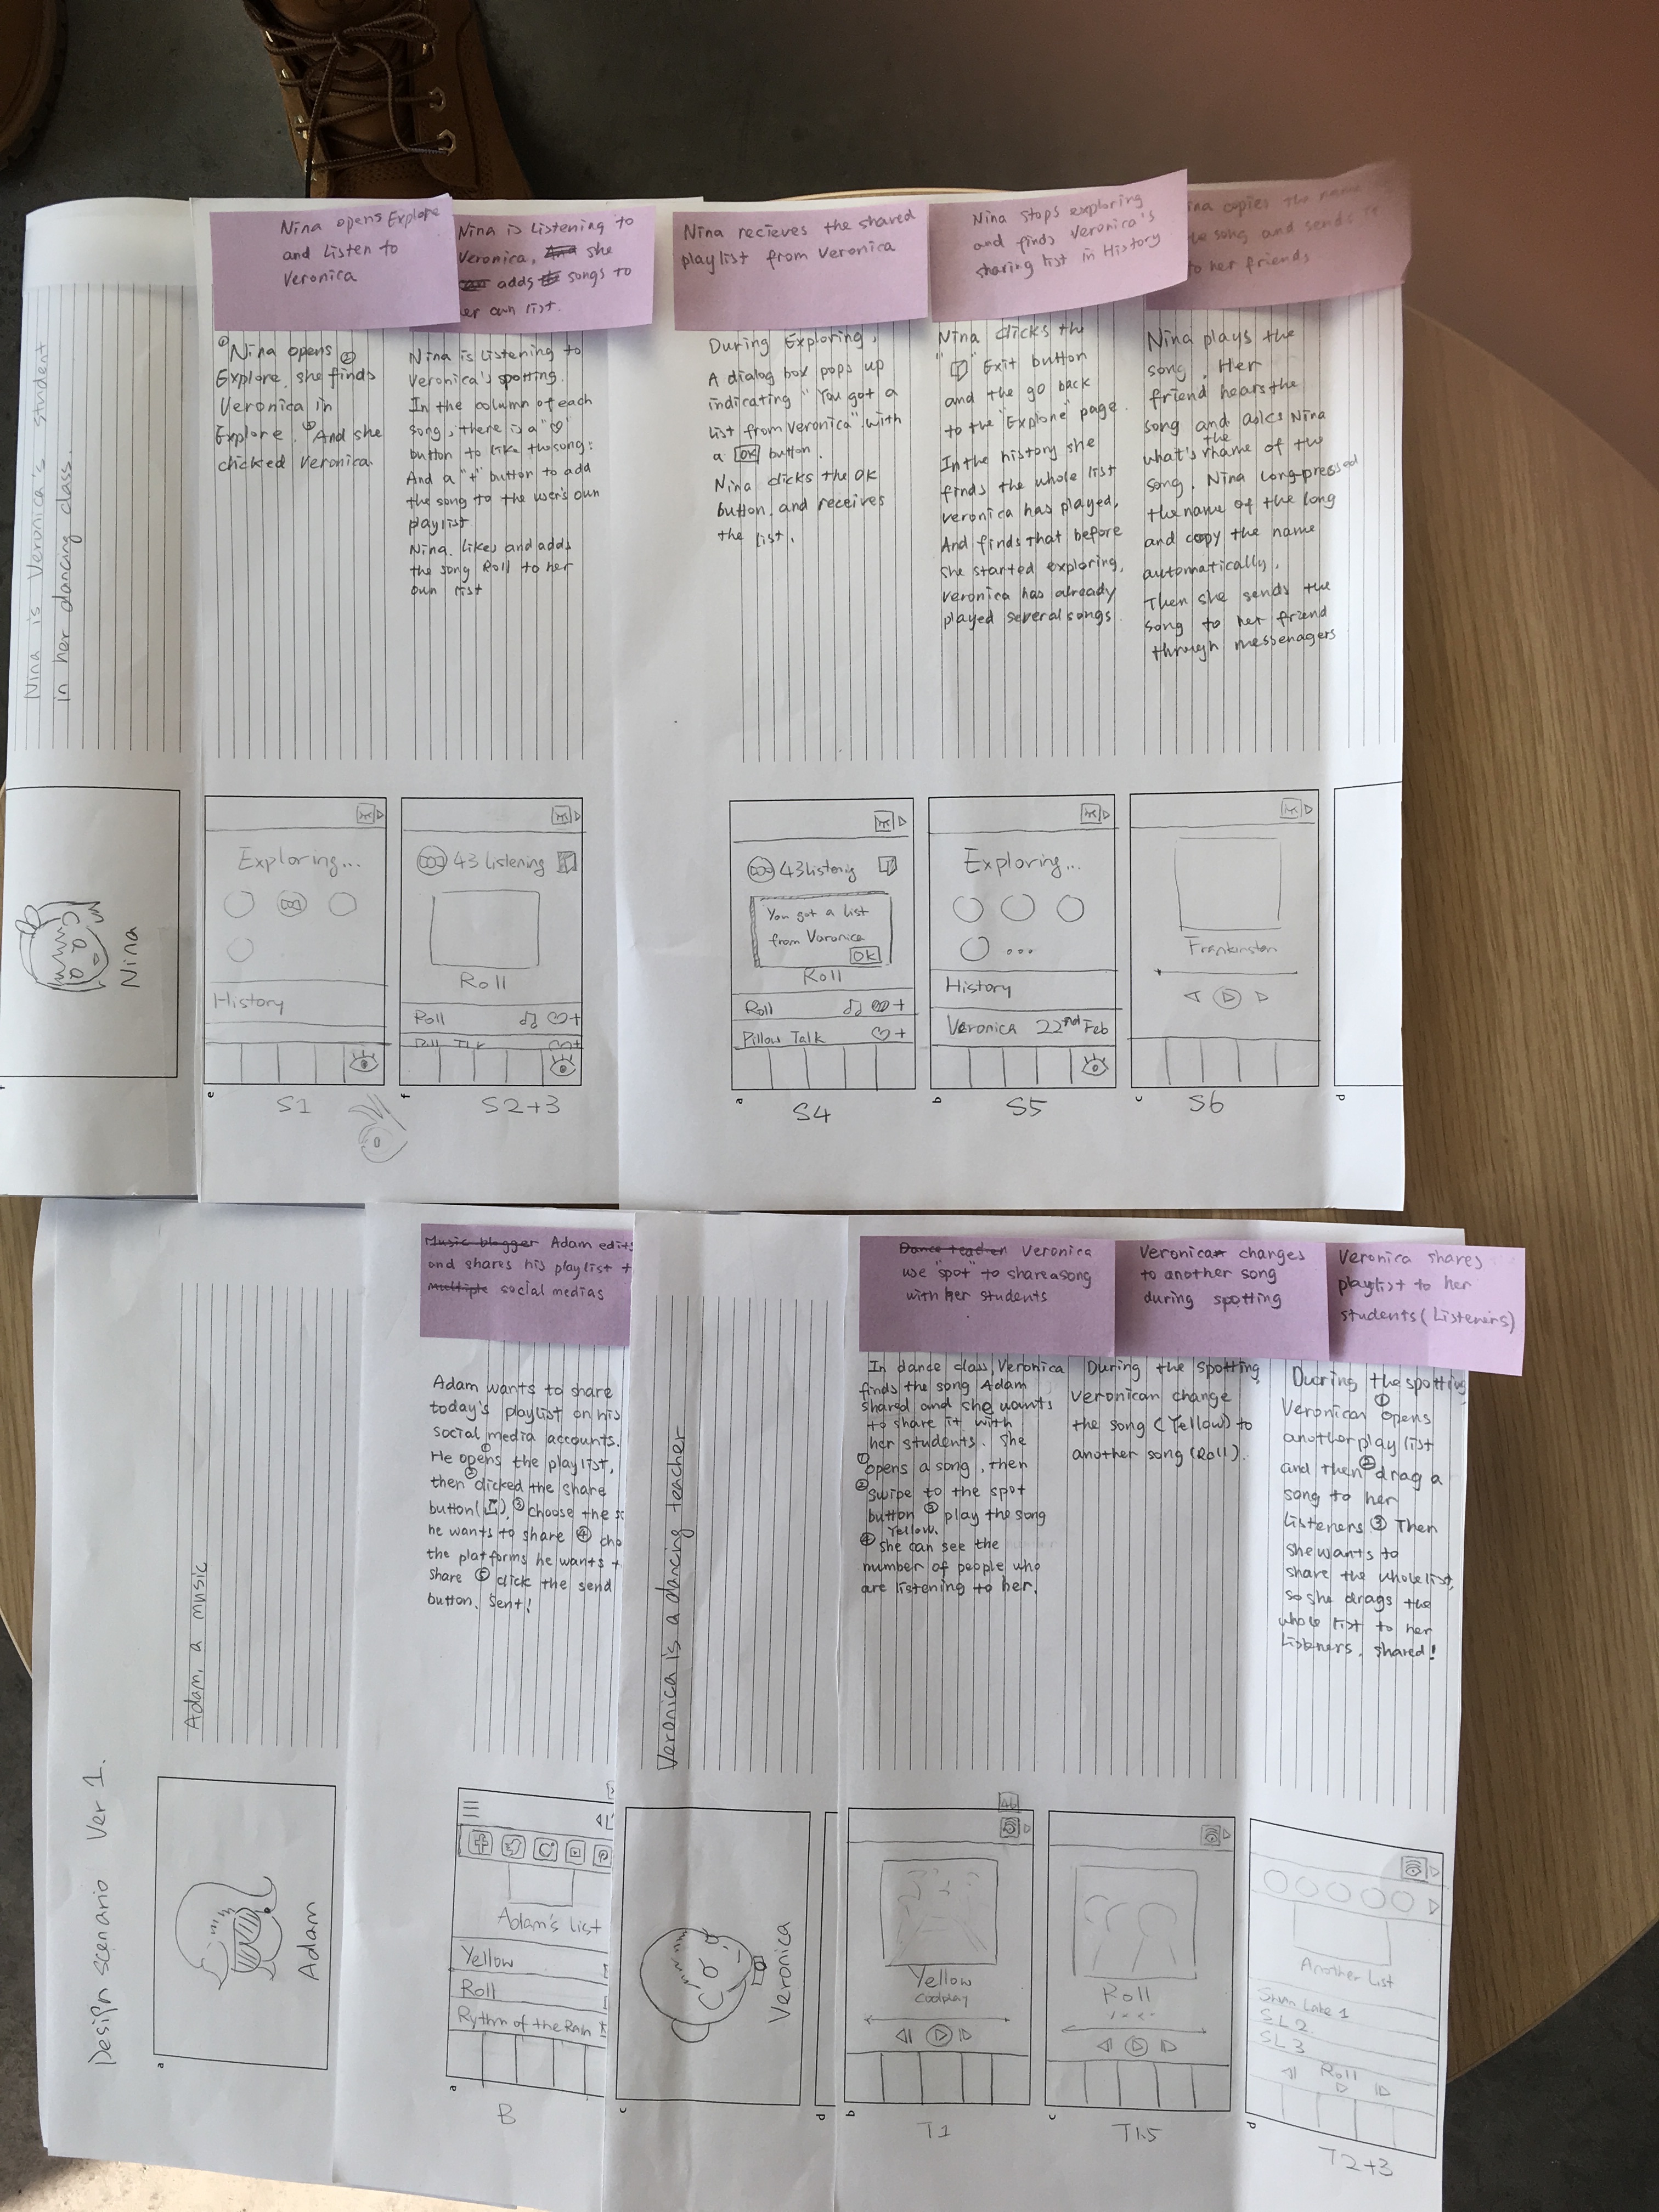 Nina is Veronica's student
in her dancing class.
Nina
Nina opens Explore
and listen to
Veronica
① Nina opens ②
Explore. she finds
Veronica in
Explore. ③ And she
clicked Veronica.
Exploring...
History
e
S1
Nina is listening to
Veronica, she
adds songs to
er own list.
Nina is listening to
Veronica's spotting.
In the column of each
song, there is a "♡"
button to like the song:
And a "+" button to add
the song to the user's own
playlist.
Nina likes and adds
the song Roll to her
own list
43 listening
Roll
Roll ♡+
♡+
f
S2+3
Nina recieves the shared
playlist from Veronica
During Exploring,
A dialog box pops up
indicating "You got a
list from Veronica" with
a OK button.
Nina clicks the OK
button and receives
the list.
43 listenig
You got a list
from Varonica
OK
Roll
Roll +
Pillow Talk ♡+
a
S4
Nina stops exploring
and finds Veronica's
sharing list in History
Nina clicks the
" " Exit button
and the go back
to the "Explore" page.
In the history she
finds the whole list
Veronica has played,
And finds that before
she started exploring,
Veronica has already
played several songs.
Exploring...
...
History
Veronica 22nd Feb
b
S5
ina copies the name
he song and sends it
to her friends
Nina plays the
song. Her
friend hears the
song and asks Nina
what's the name of the
song. Nina long-pressed
the name of the long
and copy the name
automatically.
Then she sends the
song to her friend
through messenagers
Frankinston
c
S6
d
Design scenario Ver 1.
Adam, a music
Adam
a
Music blogger Adam edits
and shares his playlist t
multiple social medias
Adam wants to share
today's playlist on his
social media accounts.
He ① opens the playlist,
then ② clicked the share
button( ), ③ choose the s
he wants to share ④ cho
the platforms he wants t
share ⑤ click the send
button. Sent!
Adam's List
Yellow
Roll
Rythm of the Rain
a
B
Veronica is a dancing teacher
Veronica
c
d
Dance teacher Veronica
use "spot" to share a song
with her students
In dance class, Veronica
finds the song Adam
shared and she wants
to share it with
her students. She
① opens a song, then
② swipe to the spot
button ③ play the song
Yellow.
④ she can see the
number of people who
are listening to her.
Yellow
Coolplay
b
T1
Veronica changes
to another song
during spotting
During the spotting
Veronican change
the song (Yellow) to
another song (Roll).
Roll
c
T1.5
Veronica shares
playlist to her
students (Listeners)
During the spotting
Veronican ① opens
another play list
and then ② drag a
song to her
listeners ③ Then
she wants to
share the whole list,
so she drags the
whole list to her
listeners. shared!
Another List
Swan Lake 1
SL 2
SL 3
Roll
d
T2+3